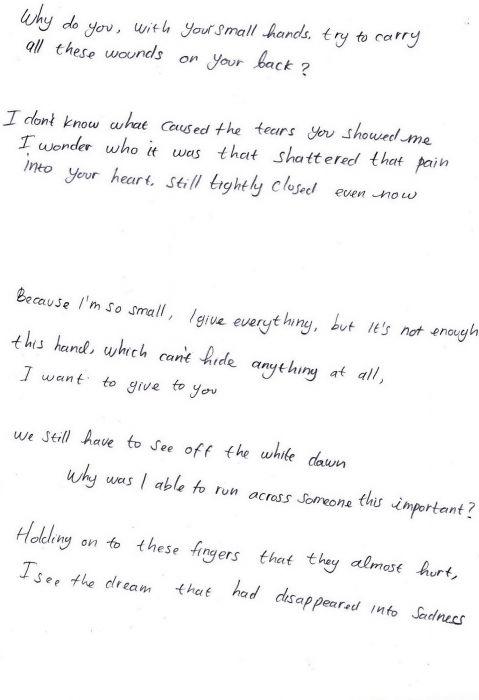 Why do you, with your small hands, try to carry
all these wounds on your back?
I don't know what caused the tears you showed me
I wonder who it was that shattered that pain
into your heart, still tightly closed even now
Because I'm so small, I give everything, but it's not enough
this hand, which can't hide anything at all,
I want to give to you
we still have to see off the white dawn
Why was I able to run across someone this important?
Holding on to these fingers that they almost hurt,
I see the dream that had disappeared into sadness